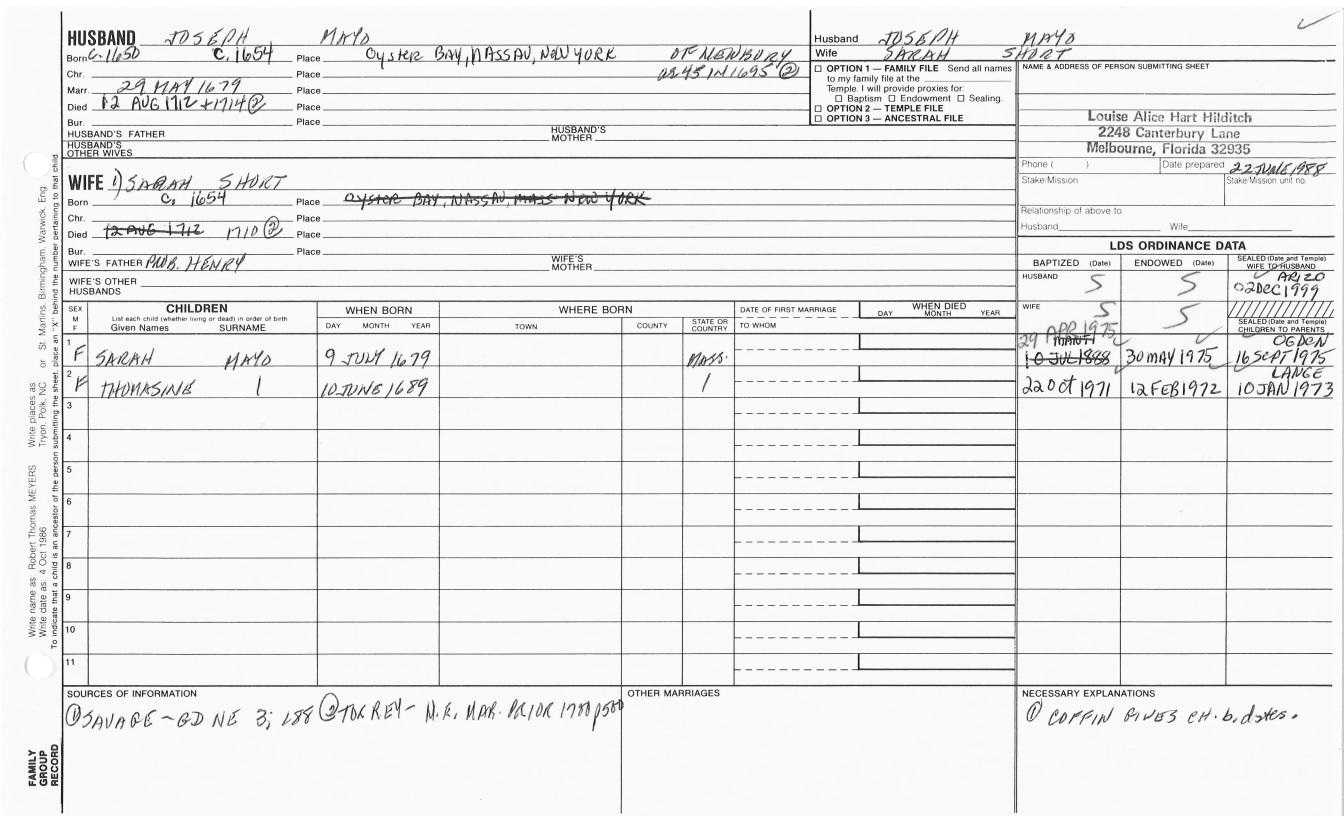 HUSBAND JOSEPH MAYO
Born C. 1650 C. 1654 Place OYSTER BAY, NASSAU, NEW YORK OF NEWBURY
Chr. Place
Marr. 29 MAY 1679 Place
Died 12 AUG 1712 + 1714 ② Place
Bur. Place
HUSBAND'S FATHER HUSBAND'S MOTHER
HUSBAND'S OTHER WIVES
WIFE 1) SARAH SHORT
Born C. 1654 Place OYSTER BAY, NASSAU, MASS NEW YORK
Chr. Place
Died 12 AUG 1712 1710 ② Place
Bur. Place
WIFE'S FATHER PROB. HENRY WIFE'S MOTHER
WIFE'S OTHER HUSBANDS
Husband JOSEPH MAYO
Wife SARAH SHORT
☐ OPTION 1 — FAMILY FILE Send all names
to my family file at the
Temple. I will provide proxies for:
☐ Baptism ☐ Endowment ☐ Sealing.
☐ OPTION 2 — TEMPLE FILE
☐ OPTION 3 — ANCESTRAL FILE
NAME & ADDRESS OF PERSON SUBMITTING SHEET
Louise Alice Hart Hilditch
2248 Canterbury Lane
Melbourne, Florida 32935
Phone ( ) Date prepared 22 JUNE, 1988
Stake/Mission Stake/Mission unit no.
Relationship of above to
Husband Wife
LDS ORDINANCE DATA
BAPTIZED (Date) ENDOWED (Date) SEALED (Date and Temple) WIFE TO HUSBAND
HUSBAND S S ARIZO 02 DEC 1999
WIFE S S
SEALED (Date and Temple) CHILDREN TO PARENTS
SEX M F
CHILDREN
List each child (whether living or dead) in order of birth
Given Names SURNAME
WHEN BORN
DAY MONTH YEAR
WHERE BORN
TOWN COUNTY STATE OR COUNTRY
DATE OF FIRST MARRIAGE
TO WHOM
WHEN DIED
DAY MONTH YEAR
29 APR 1975 MANTI OGDEN
1 F SARAH MAYO 9 JULY 1679 MASS. 10 JUL 1888 30 MAY 1975 16 SEPT 1975
LANGE
2 F THOMASINE 1 10 JUNE 1689 1 22 Oct 1971 12 FEB 1972 10 JAN 1973
3
4
5
6
7
8
9
10
11
SOURCES OF INFORMATION
① SAVAGE - GD NE 3; 188 ② TORREY - N.E. MAR. PRIOR 1700 p500
OTHER MARRIAGES
NECESSARY EXPLANATIONS
① COFFIN GIVES CH. b. dates.
Write name as Robert Thomas MEYERS Write places as Tryon, Polk, NC or St. Martins, Birmingham, Warwick, Eng.
Write date as 4 Oct 1986
To indicate that a child is an ancestor of the person submitting the sheet, place an "X" behind the number pertaining to that child
FAMILY
GROUP
RECORD